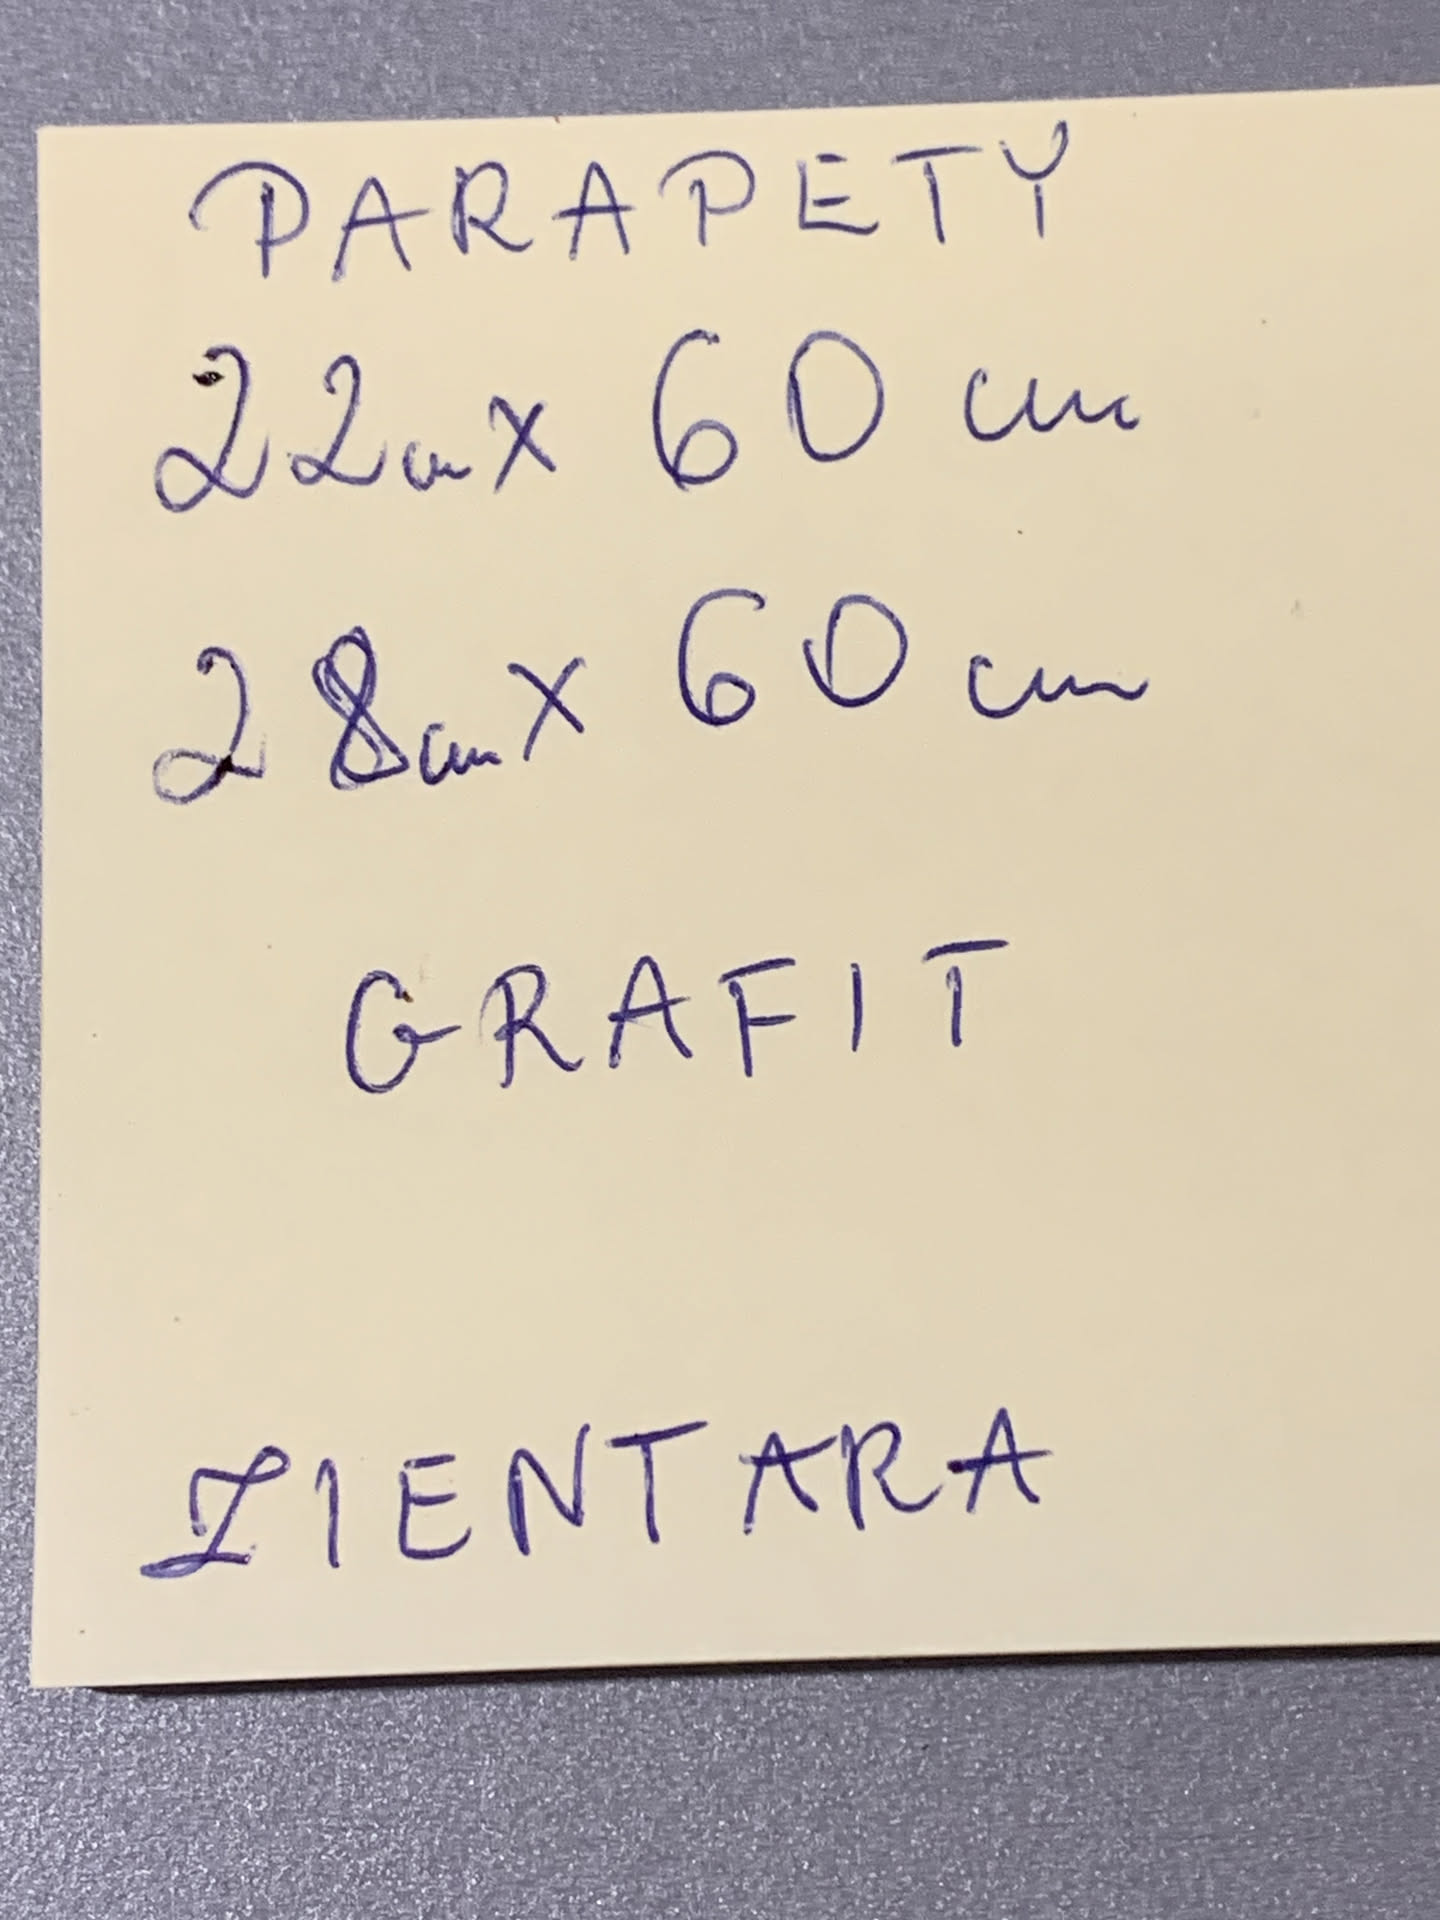 PARAPETY
22cm x 60 cm
28cm x 60 cm
GRAFIT
ZIENTARA